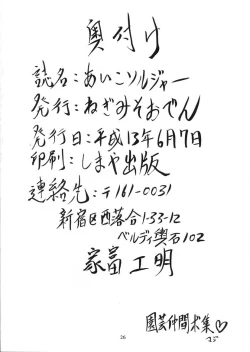 奥付け
誌名：あいこソルジャー
発行：ねぎみそおでん
発行日：平成13年6月7日
印刷：しまや出版
連絡先：〒161-0031
新宿区西落合1-33-12
ベルディ輿石102
家富工明
園芸仲間求集♡
26
25